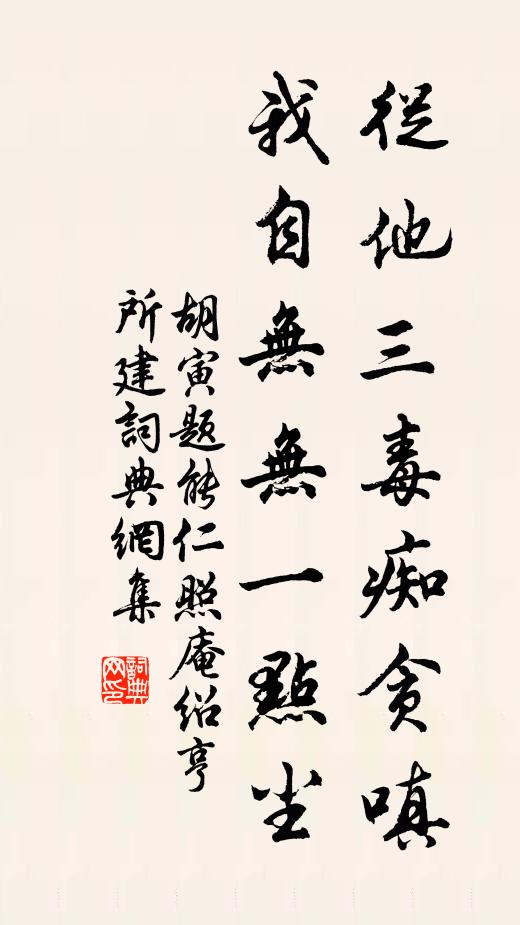 從他三毒痴贪嗔
我自無無一點尘
胡寅题能仁照庵绍亨
所建詞典網集
詞典网印